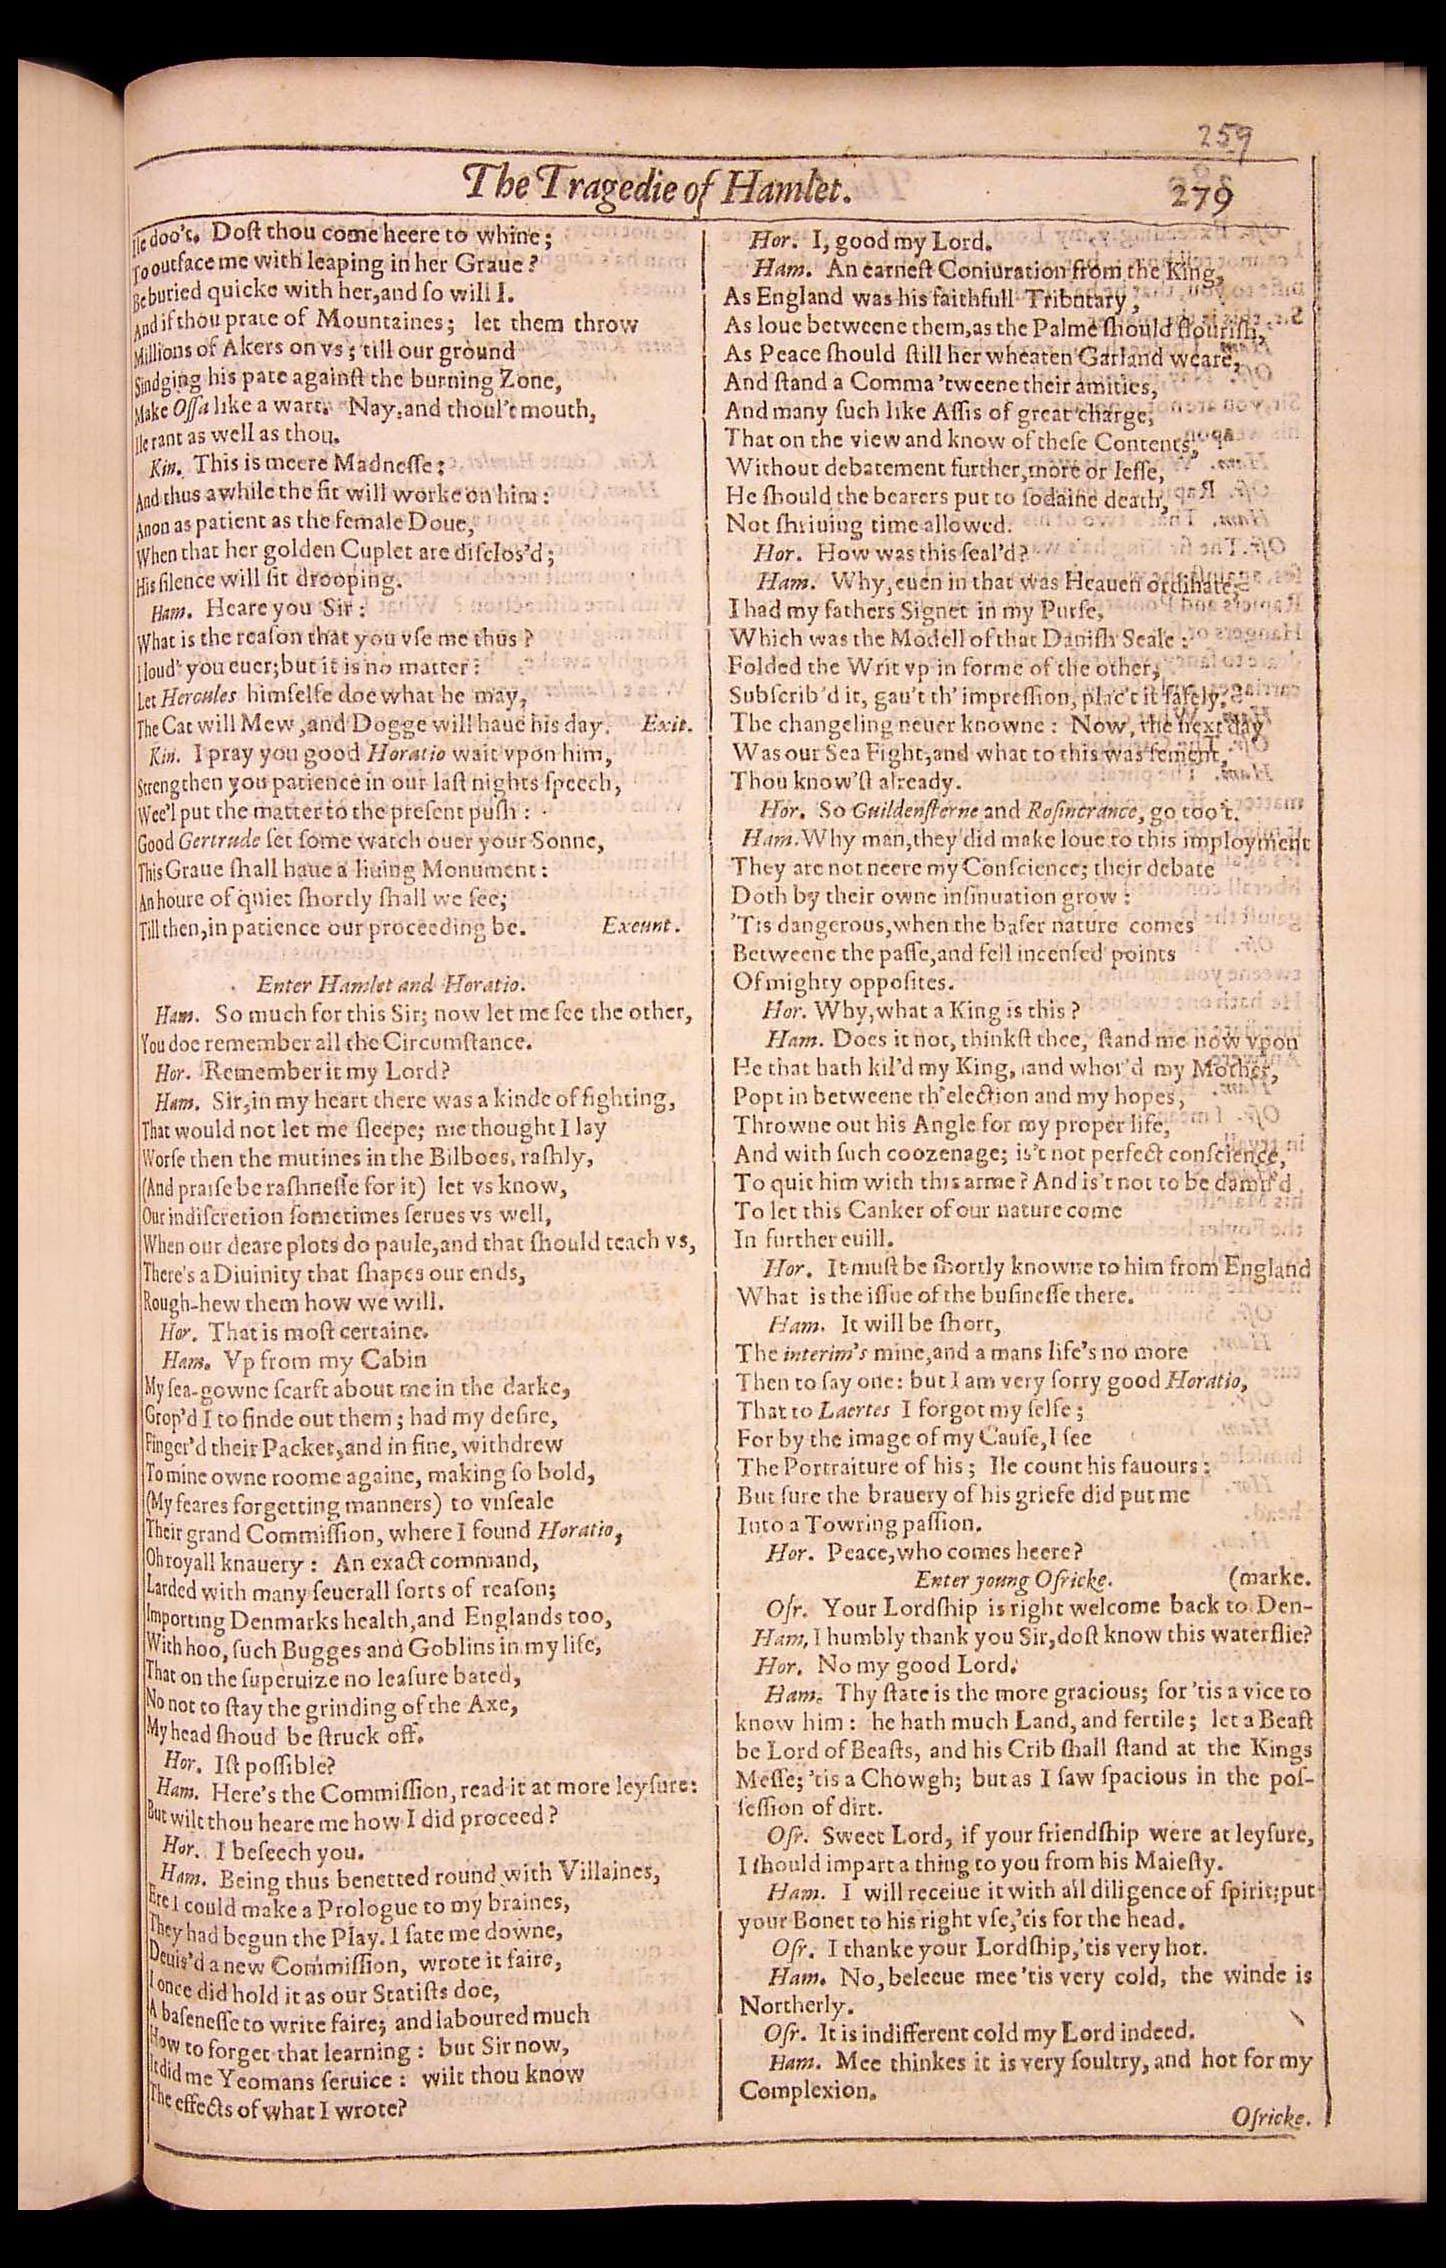 259
The Tragedie of Hamlet.
279
Ile doo't. Dost thou come heere to whine;
To outface me with leaping in her Graue?
Be buried quicke with her, and so will I.
And if thou prate of Mountaines; let them throw
Millions of Akers on vs; till our ground
Sindging his pate against the burning Zone,
Make Ossa like a wart. Nay, and thoul't mouth,
Ile rant as well as thou.
Kin. This is meere Madnesse:
And thus awhile the fit will worke on him:
Anon as patient as the female Doue,
When that her golden Cuplet are disclos'd;
His silence will sit drooping.
Ham. Heare you Sir:
What is the reason that you vse me thus?
I loud' you euer; but it is no matter:
Let Hercules himselfe doe what he may,
The Cat will Mew, and Dogge will haue his day. Exit.
Kin. I pray you good Horatio wait vpon him,
Strengthen you patience in our last nights speech,
Wee'l put the matter to the present push:
Good Gertrude set some watch ouer your Sonne,
This Graue shall haue a liuing Monument:
An houre of quiet shortly shall we see;
Till then, in patience our proceeding be. Exeunt.
Enter Hamlet and Horatio.
Ham. So much for this Sir; now let me see the other,
You doe remember all the Circumstance.
Hor. Remember it my Lord?
Ham. Sir, in my heart there was a kinde of fighting,
That would not let me sleepe; me thought I lay
Worse then the mutines in the Bilboes, rashly,
(And praise be rashnesse for it) let vs know,
Our indiscretion sometimes serues vs well,
When our deare plots do paule, and that should teach vs,
There's a Diuinity that shapes our ends,
Rough-hew them how we will.
Hor. That is most certaine.
Ham. Vp from my Cabin
My sea-gowne scarft about me in the darke,
Grop'd I to finde out them; had my desire,
Finger'd their Packet, and in fine, withdrew
To mine owne roome againe, making so bold,
(My feares forgetting manners) to vnseale
Their grand Commission, where I found Horatio,
Oh royall knauery: An exact command,
Larded with many seuerall sorts of reason;
Importing Denmarks health, and Englands too,
With hoo, such Bugges and Goblins in my life,
That on the superuize no leasure bated,
No not to stay the grinding of the Axe,
My head shoud be struck off.
Hor. Ist possible?
Ham. Here's the Commission, read it at more leysure:
But wilt thou heare me how I did proceed?
Hor. I beseech you.
Ham. Being thus benetted round with Villaines,
Ere I could make a Prologue to my braines,
They had begun the Play. I sate me downe,
Deuis'd a new Commission, wrote it faire,
I once did hold it as our Statists doe,
A basenesse to write faire; and laboured much
How to forget that learning: but Sir now,
It did me Yeomans seruice: wilt thou know
The effects of what I wrote?
Hor. I, good my Lord.
Ham. An earnest Coniuration from the King,
As England was his faithfull Tributary,
As loue betweene them, as the Palme should flourish,
As Peace should still her wheaten Garland weare,
And stand a Comma 'tweene their amities,
And many such like Assis of great charge,
That on the view and know of these Contents,
Without debatement further, more or lesse,
He should the bearers put to sodaine death,
Not shriuing time allowed.
Hor. How was this seal'd?
Ham. Why, euen in that was Heauen ordinate;
I had my fathers Signet in my Purse,
Which was the Modell of that Danish Seale:
Folded the Writ vp in forme of the other,
Subscrib'd it, gau't th' impression, plac't it safely,
The changeling neuer knowne: Now, the next day
Was our Sea Fight, and what to this was sement,
Thou know'st already.
Hor. So Guildensterne and Rosincrance, go too't.
Ham. Why man, they did make loue to this imployment
They are not neere my Conscience; their debate
Doth by their owne insinuation grow:
'Tis dangerous, when the baser nature comes
Betweene the passe, and fell incensed points
Of mighty opposites.
Hor. Why, what a King is this?
Ham. Does it not, thinkst thee, stand me now vpon
He that hath kil'd my King, and whor'd my Mother,
Popt in betweene th' election and my hopes,
Throwne out his Angle for my proper life,
And with such coozenage; is't not perfect conscience,
To quit him with this arme? And is't not to be damn'd
To let this Canker of our nature come
In further euill.
Hor. It must be shortly knowne to him from England
What is the issue of the businesse there.
Ham. It will be short,
The interim's mine, and a mans life's no more
Then to say one: but I am very sorry good Horatio,
That to Laertes I forgot my selfe;
For by the image of my Cause, I see
The Portraiture of his; Ile count his fauours:
But sure the brauery of his griefe did put me
Into a Towring passion.
Hor. Peace, who comes heere?
Enter young Osricke. (marke.
Osr. Your Lordship is right welcome back to Den-
Ham. I humbly thank you Sir, dost know this waterflie?
Hor. No my good Lord.
Ham. Thy state is the more gracious; for 'tis a vice to
know him: he hath much Land, and fertile; let a Beast
be Lord of Beasts, and his Crib shall stand at the Kings
Messe; 'tis a Chowgh; but as I saw spacious in the pos-
session of dirt.
Osr. Sweet Lord, if your friendship were at leysure,
I should impart a thing to you from his Maiesty.
Ham. I will receiue it with all diligence of spirit; put
your Bonet to his right vse, 'tis for the head.
Osr. I thanke your Lordship, 'tis very hot.
Ham. No, beleeue mee 'tis very cold, the winde is
Northerly.
Osr. It is indifferent cold my Lord indeed.
Ham. Mee thinkes it is very soultry, and hot for my
Complexion.
Osricke.